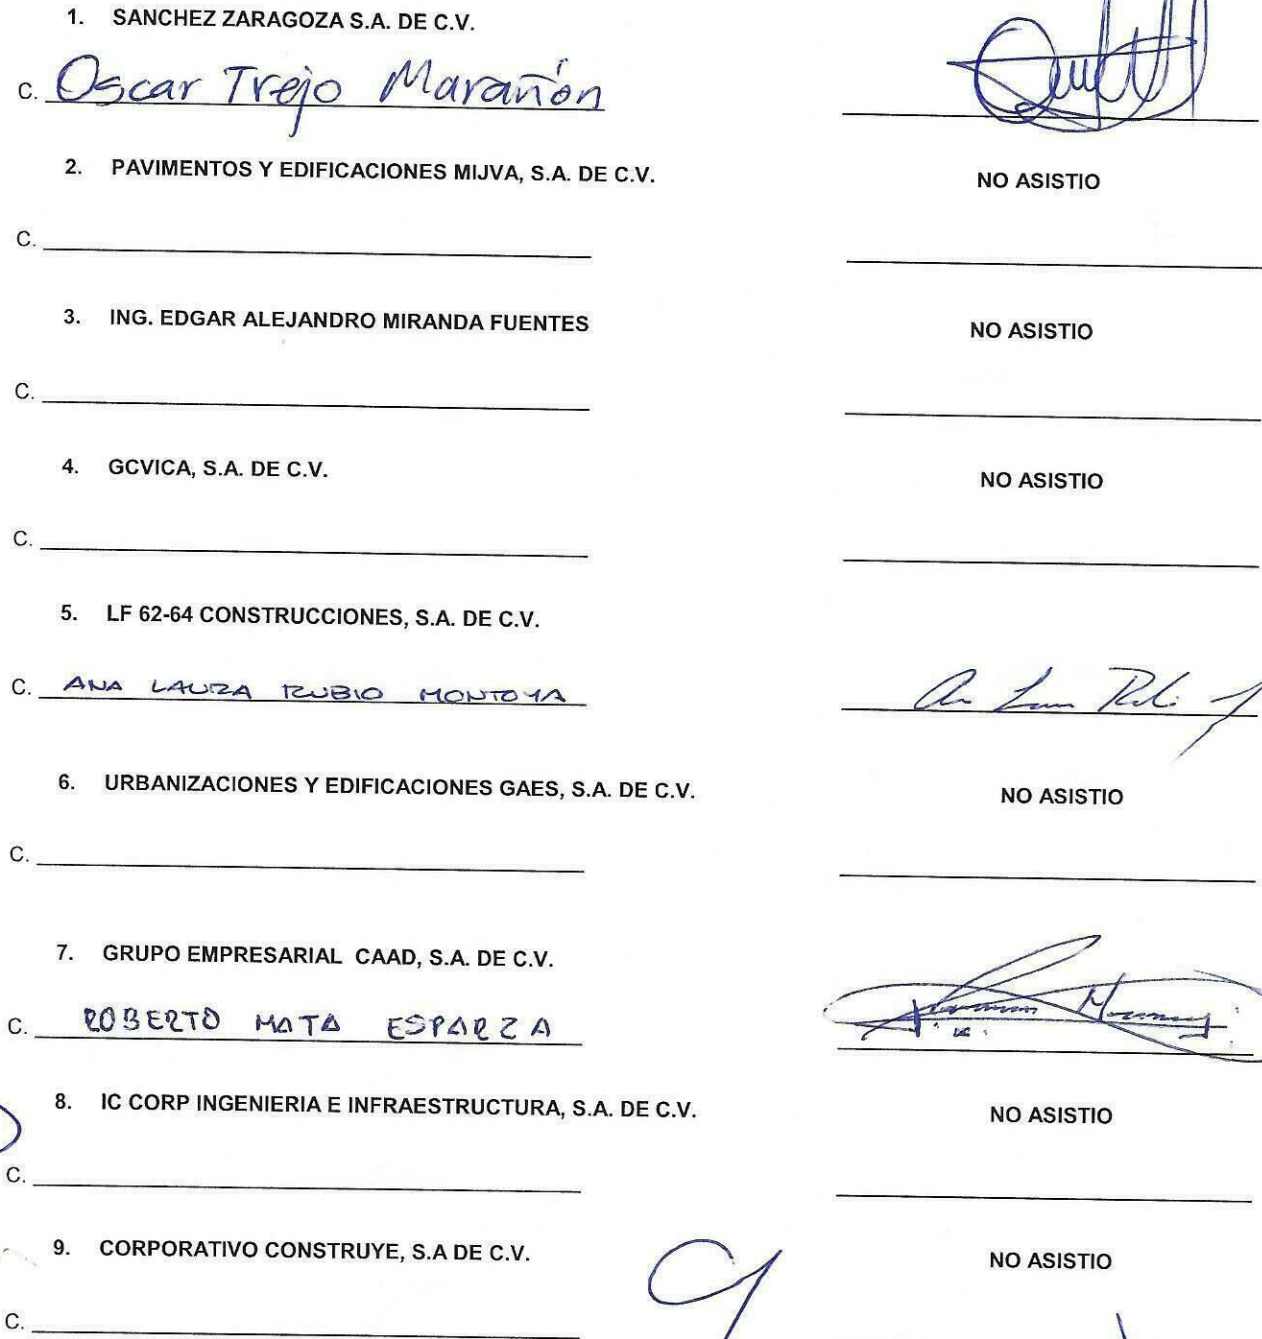 1. SANCHEZ ZARAGOZA S.A. DE C.V.
C. Oscar Trejo Marañón
2. PAVIMENTOS Y EDIFICACIONES MIJVA, S.A. DE C.V. NO ASISTIO
C.
3. ING. EDGAR ALEJANDRO MIRANDA FUENTES NO ASISTIO
C.
4. GCVICA, S.A. DE C.V. NO ASISTIO
C.
5. LF 62-64 CONSTRUCCIONES, S.A. DE C.V.
C. ANA LAURA RUBIO MONTOYA
6. URBANIZACIONES Y EDIFICACIONES GAES, S.A. DE C.V. NO ASISTIO
C.
7. GRUPO EMPRESARIAL CAAD, S.A. DE C.V.
C. ROBERTO MATA ESPARZA
8. IC CORP INGENIERIA E INFRAESTRUCTURA, S.A. DE C.V. NO ASISTIO
C.
9. CORPORATIVO CONSTRUYE, S.A DE C.V. NO ASISTIO
C.